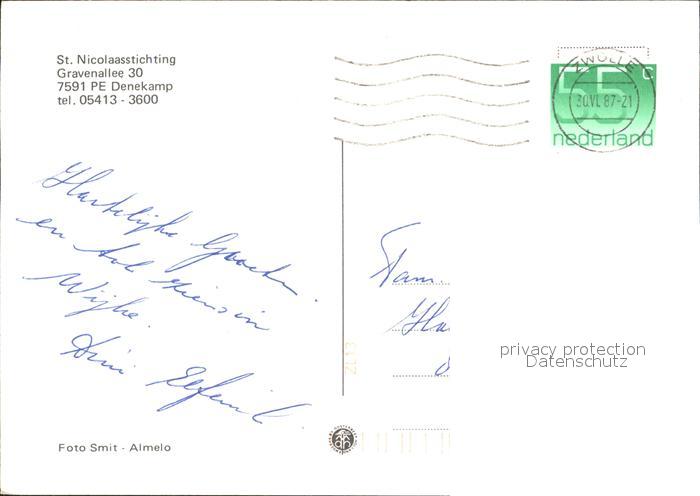 St. Nicolaasstichting
Gravenallee 30
7591 PE Denekamp
tel. 05413 - 3600
ZWOLLE
30.VI. 87-21
55 c
nederland
Hartelijke Groeten
en tot ziens in
Wijhe.
Dini
Fam.
privacy protection
Datenschutz
ZL13
Foto Smit - Almelo